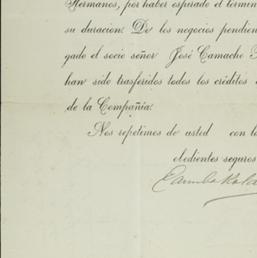 Hermanos, por haber espirado el termin
su duracion: De los negocios pendien
gado el socio señor José Camacho
han sido trasferidos todos los créditos
de la Compañia:
Nos repetimos de usted con l
edientes seguros